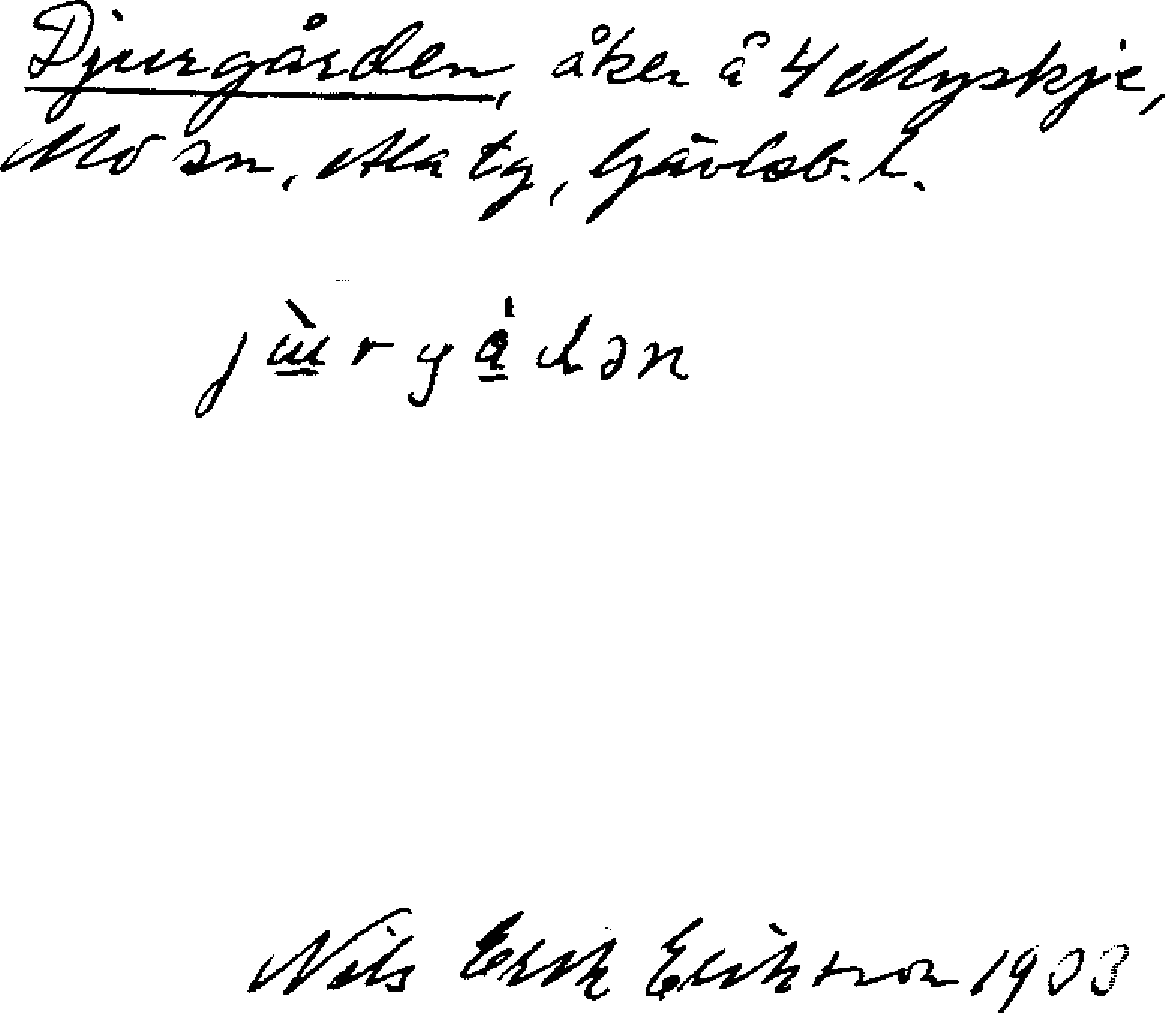 Djurgården, åker å 4 Myskje,
Mo sn, Ala tg, Gävleb. l.
jɯ̀rgɑ́dən
Nils Erik Eriksson 1903